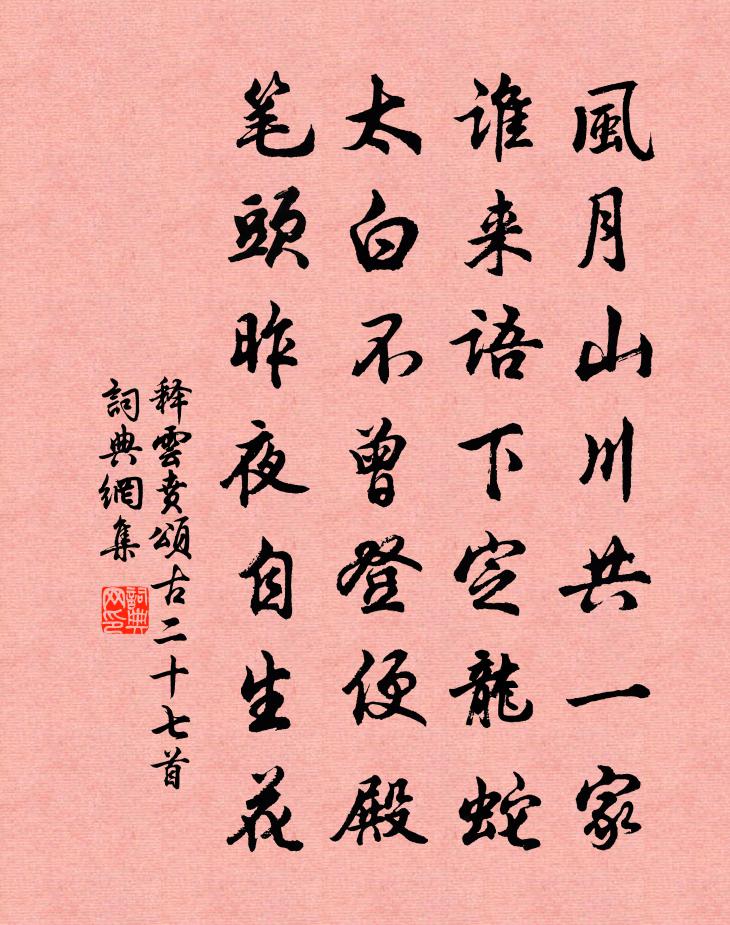 風月山川共一家
谁来語下定龍蛇
太白不曾登便殿
笔頭昨夜自生花
释雲賁頌古二十七首
詞典網集
詞典网印